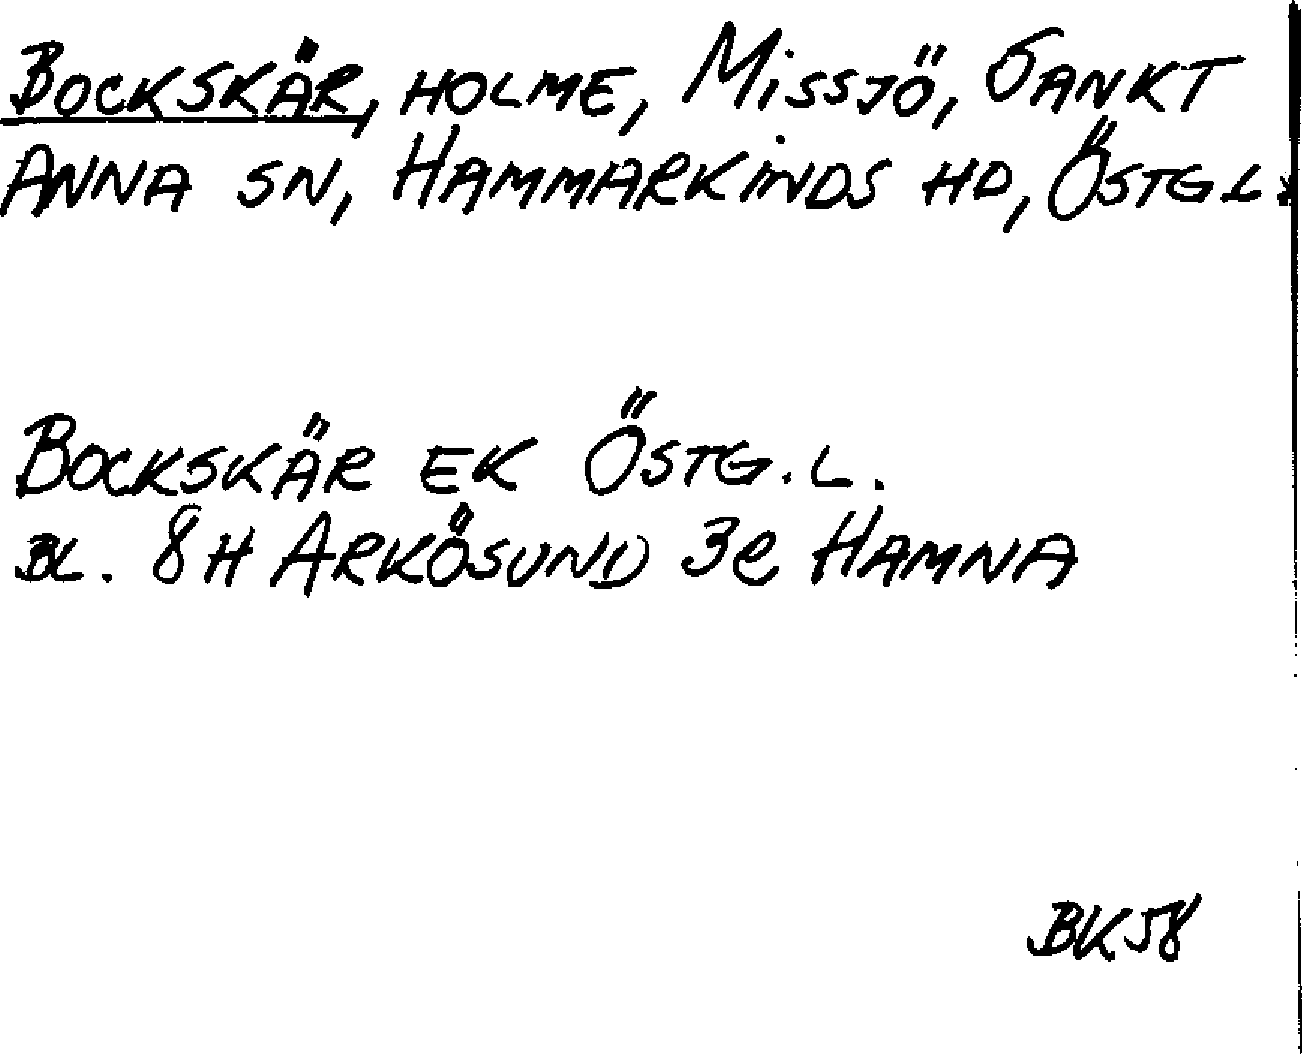 BOCKSKÄR, HOLME, MISSJÖ, SANKT
ANNA SN, HAMMARKINDS HD, ÖSTG.L.
BOCKSKÄR EK ÖSTG.L.
BL. 8H ARKÖSUND 3e HAMNA
BK58